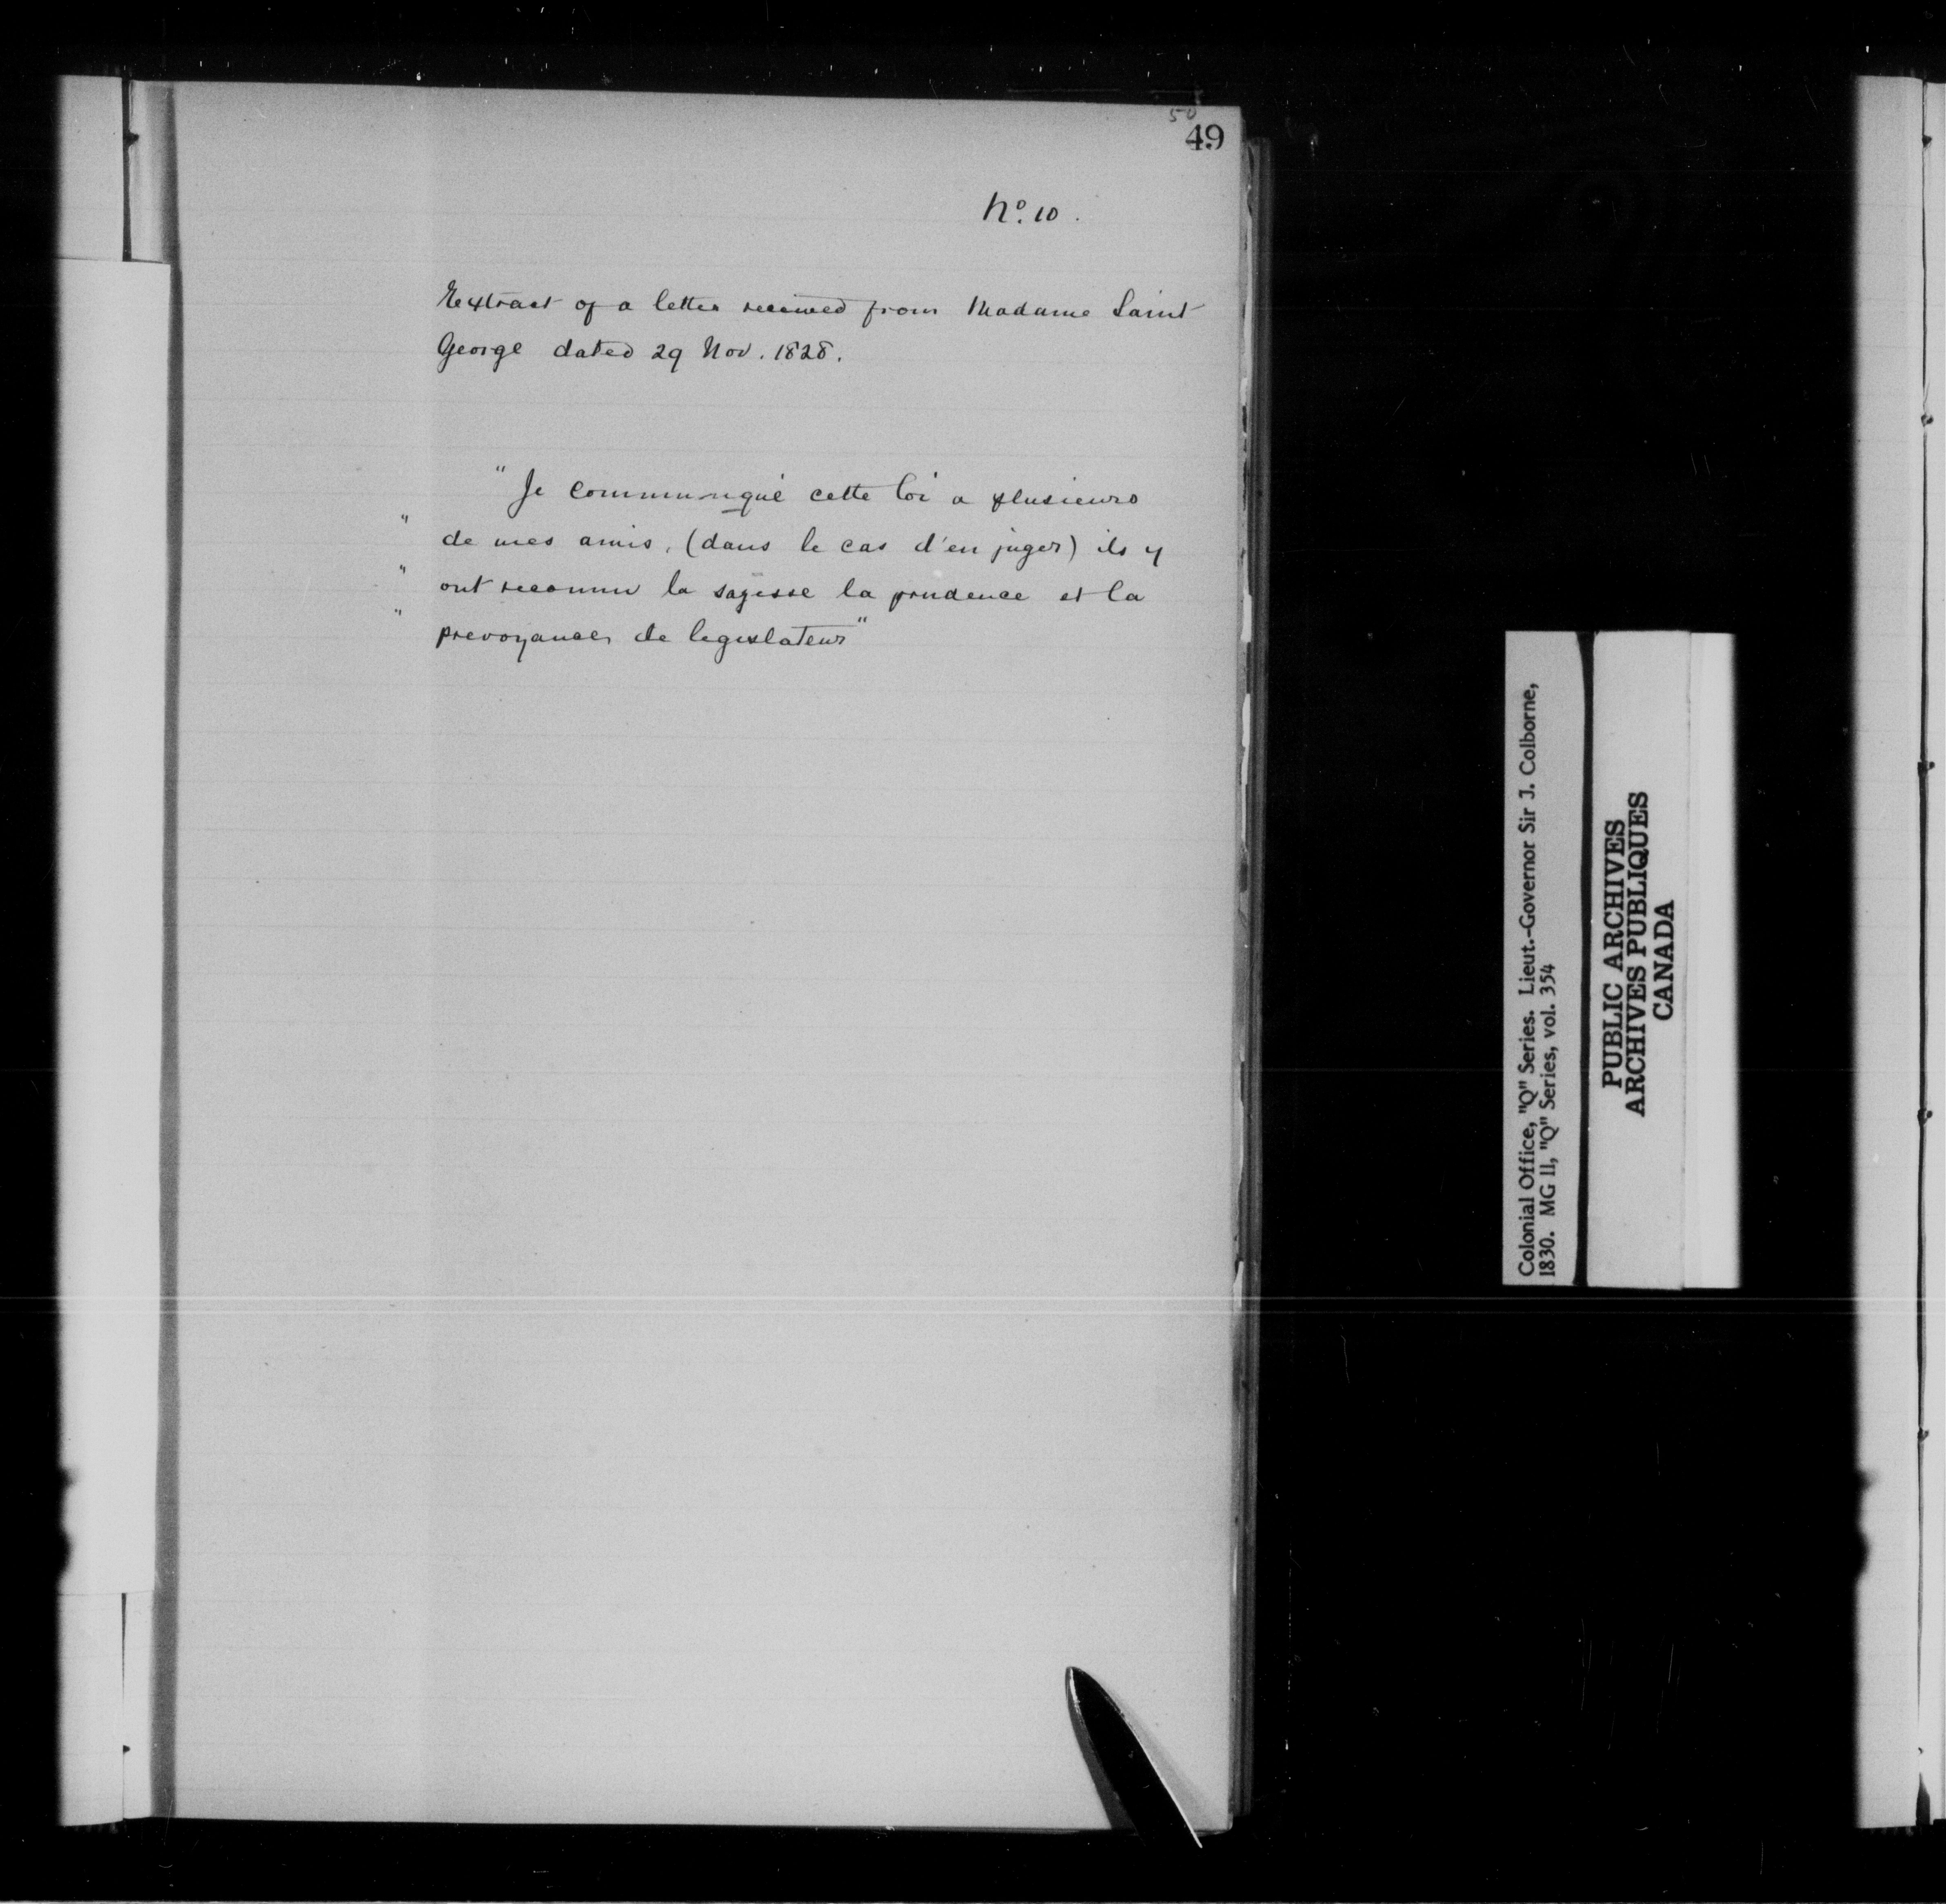 50
49
No. 10.
Extract of a letter received from Madame Saint
George dated 29 Nov. 1828.
"Je communiqué cette loi a plusieurs
" de mes amis, (dans le cas d'en juger) ils y
" ont reconnu la sagesse la prudence et la
" prevoyance de legislateur"
Colonial Office, "Q" Series. Lieut.-Governor Sir J. Colborne,
1830. MG 11, "Q" Series, vol. 354
PUBLIC ARCHIVES
ARCHIVES PUBLIQUES
CANADA